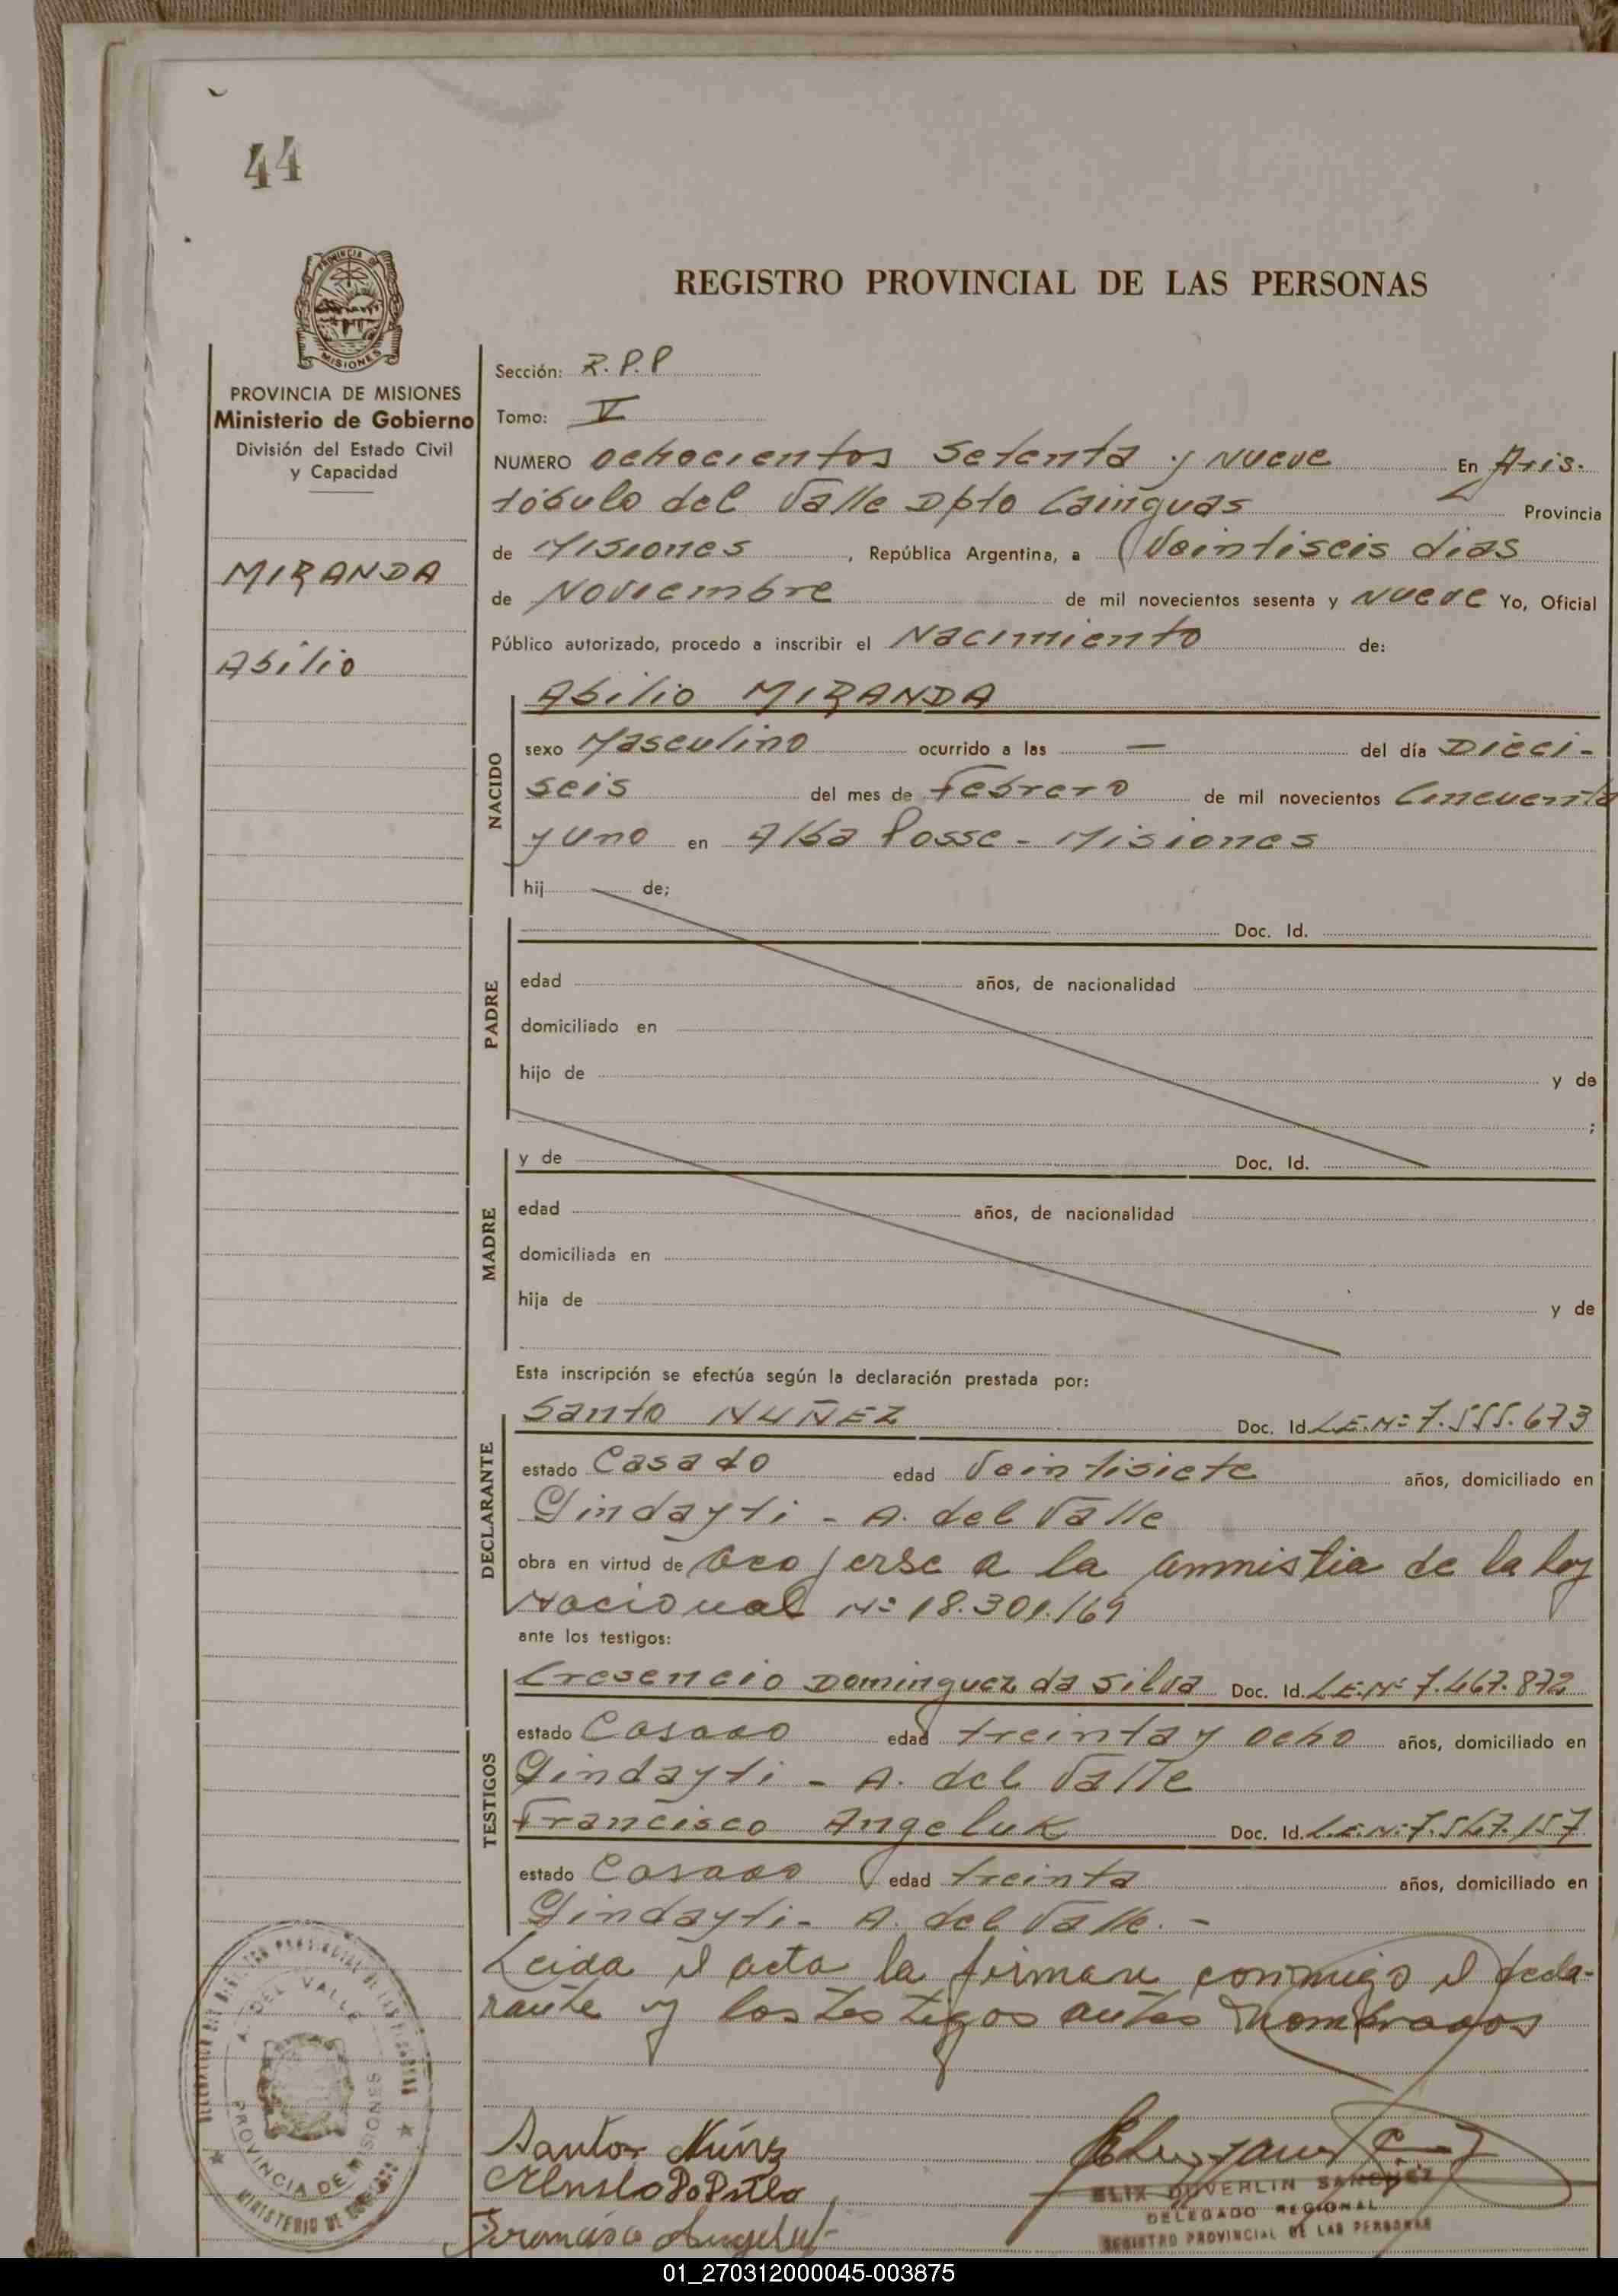 44
REGISTRO PROVINCIAL DE LAS PERSONAS
PROVINCIA DE MISIONES
Ministerio de Gobierno
División del Estado Civil
y Capacidad
MIRANDA
Abilio
Sección: R.P.P
Tomo: V
NUMERO ochocientos setenta y nueve En Aris-
tóbulo del Valle Dpto Cainguas Provincia
de Misiones, República Argentina, a Veintiseis dias
de Noviembre de mil novecientos sesenta y nueve Yo, Oficial
Público autorizado, procedo a inscribir el Nacimiento de:
NACIDO
Abilio MIRANDA
sexo Masculino ocurrido a las — del día Dieci-
seis del mes de Febrero de mil novecientos Cincuenta
y uno en Alba Posse - Misiones
hij de;
PADRE
Doc. Id.
edad años, de nacionalidad
domiciliado en
hijo de y de
;
MADRE
y de Doc. Id.
edad años, de nacionalidad
domiciliada en
hija de y de
Esta inscripción se efectúa según la declaración prestada por:
DECLARANTE
Santo NUÑEZ Doc. Id. L.E.Nº 7.555.673
estado Casado edad Veintisiete años, domiciliado en
Gindayti - A. del Valle
obra en virtud de acojerse a la amnistia de la ley
Nacional Nº 18.301/69
ante los testigos:
TESTIGOS
Cresencio Dominguez da Silva Doc. Id. L.E.Nº 7.467.872
estado Casado edad treinta y ocho años, domiciliado en
Gindayti - A. del Valle
Francisco Angeluk Doc. Id. L.E.Nº 7.547.157
estado Casado edad treinta años, domiciliado en
Gindayti - A. del Valle. -
Leida el acta la firman conmigo el decla-
rante y los testigos antes nombrados
Santos Núñez
Francisco Angeluk
ELIX DUVERLIN SANCHEZ
DELEGADO REGIONAL
REGISTRO PROVINCIAL DE LAS PERSONAS
A. DEL VALLE
PROVINCIA DE MISIONES
MINISTERIO DE GOBIERNO
01_270312000045-003875